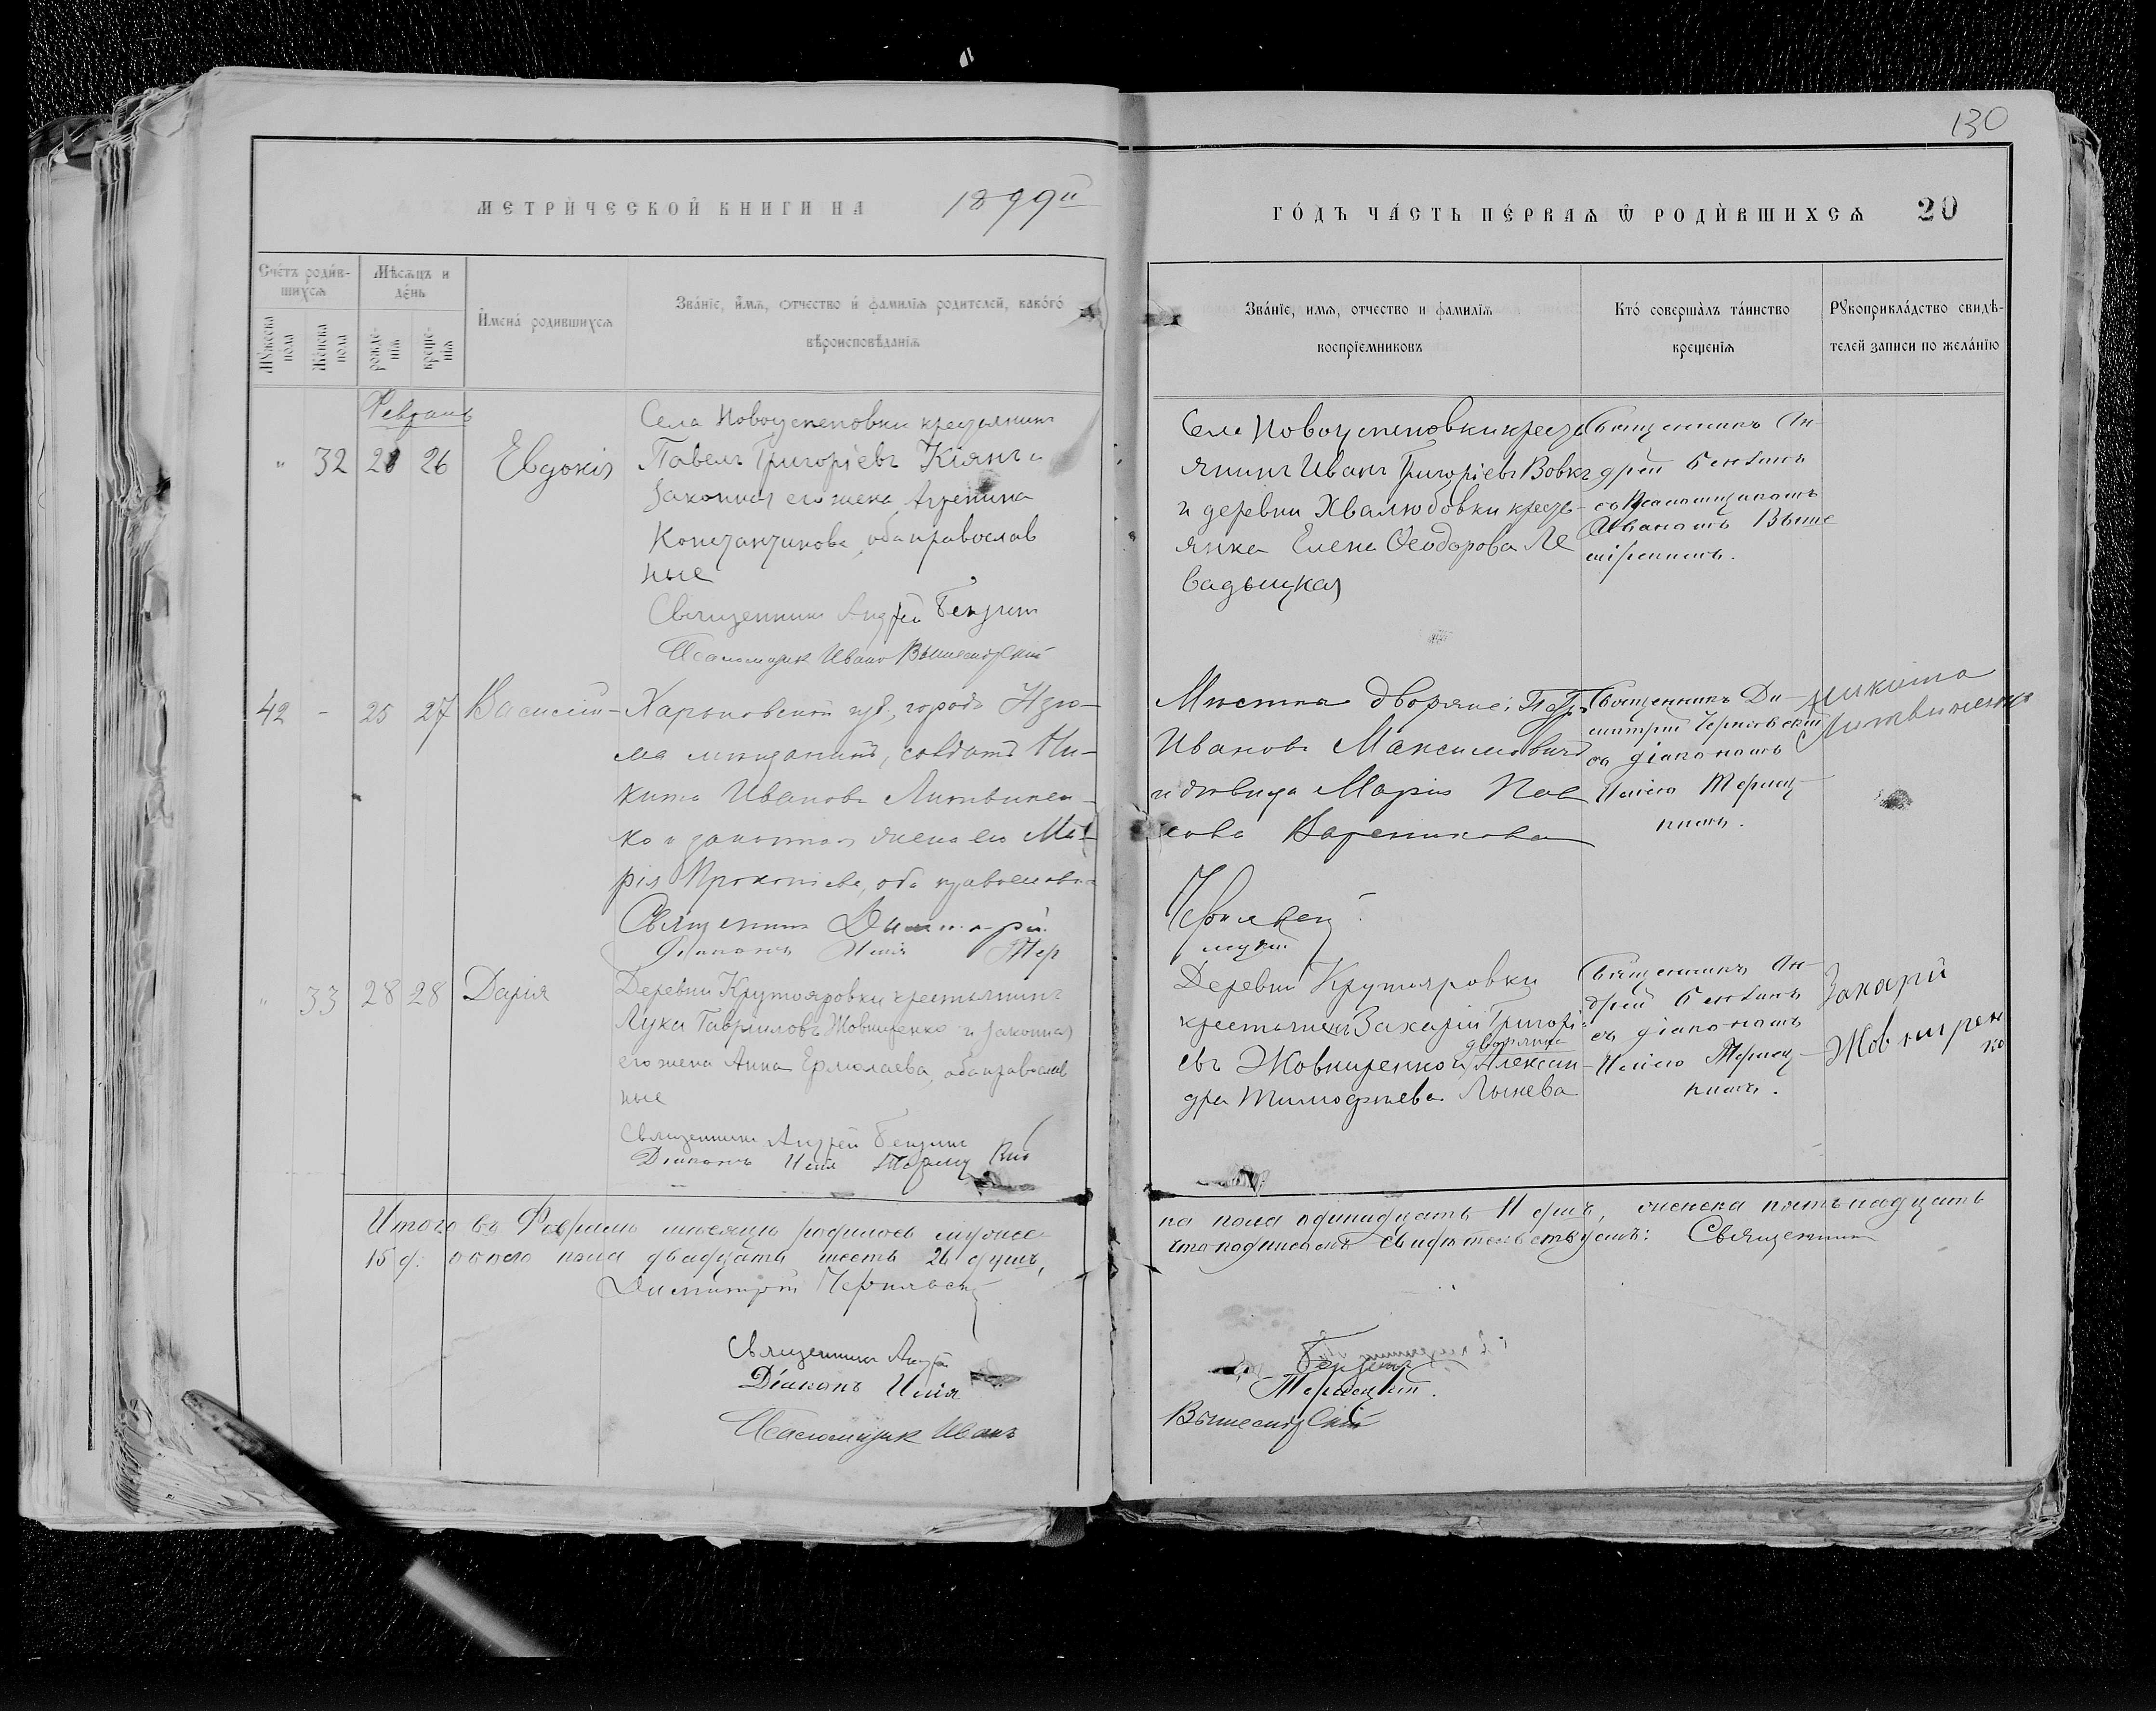 130
МЕТРИЧЕСКОЙ КНИГИ НА 1899й
ГОДЪ ЧАСТЬ ПЕРВАЯ Ѿ РОДИВШИХСЯ 20
Счетъ родив-
шихся
Мѣсяцъ и
день
Мужеска
пола
Женска
пола
рожде-
нія
креще-
нія
Имена родившихся
Званіе, имя, отчество и фамилія родителей, какого
вѣроисповѣданія
Званіе, имя, отчество и фамилія
воспріемниковъ
Кто совершалъ таинство
крещенія
Рукоприкладство свидѣ-
телей записи по желанію
Февраль
" 32 26 Евдокія
Села Новоуспеновки крестьянинъ
Павелъ Григоріевъ Кіянъ и
законная его жена Агрепина
Константинова, оба православ
ные
Священникъ Андрей
Псаломщик Иванъ
Села Новоуспеновки кресть
янинъ Иванъ Григоріевъ Вовкъ
и деревни Хвалюбовки кресть-
янка Елена Ѳеодорова Ле
вадьицкая
Священникъ Ан-
дрей
съ Псаломщикомъ
Иваномъ Выше
42 - 25 27 Василій
Харьковской губ., города Изю-
ма мѣщанинъ, солдатъ Ни-
кита Ивановъ Литвинен-
ко и законная жена его Ма-
рія Прокопіева, оба православн
Священникъ Димитрій
Діаконъ Илія Тер
Мѣстна дворяне: Петръ
Ивановъ Максимовичъ
и дѣвица Марія Пав
лова Вареникова
Священникъ Ди-
митрій
съ діакономъ
Иліею
Никита
Литвиненко
" 33 28 28 Дарія
Деревни Крутояровки крестьянинъ
Лука Гавриловъ Жовниренко и законная
его жена Анна Ермолаева, оба православ
ные
Священникъ Андрей
Діаконъ Илія
Деревни Крутояровки
крестьянинъ Захарій Григорі-
евъ Жовниренко и дворянка Алексан-
дра Тимофѣева Лынева
Священникъ Ан-
дрей
съ діакономъ
Иліею
Захарій
Жовнирен
ко
Итого въ Февралѣ мѣсяцѣ родилось мужес-
ка пола одинадцать 11 душъ, женска пятьнадцать
15 д. обоего пола двадцать шесть 26 душъ,
что подписомъ свидѣтельствуемъ: Священникъ
Димитрій
Священникъ Андрей
Діаконъ Илія
Псаломщик Иванъ